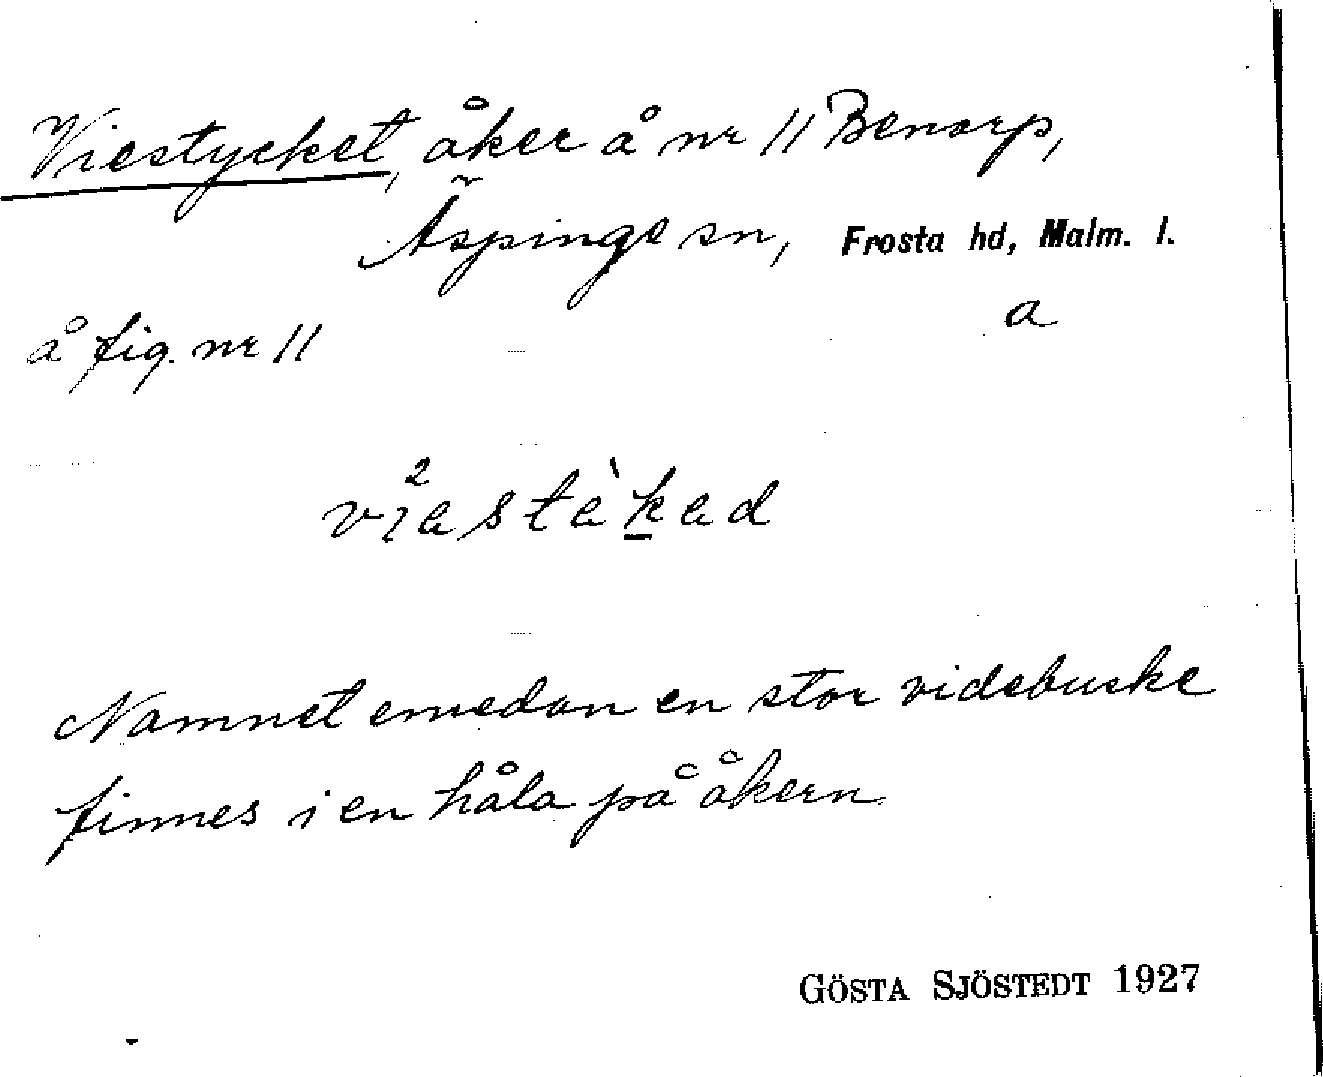 Viestycket, åker å nr 11 Benarp,
Äspinge sn, Frosta hd, Malm. l.
a
å fig. nr 11
Namnet emedan en stor videbuske
finnes i en håla på åkern.
GÖSTA SJÖSTEDT 1927